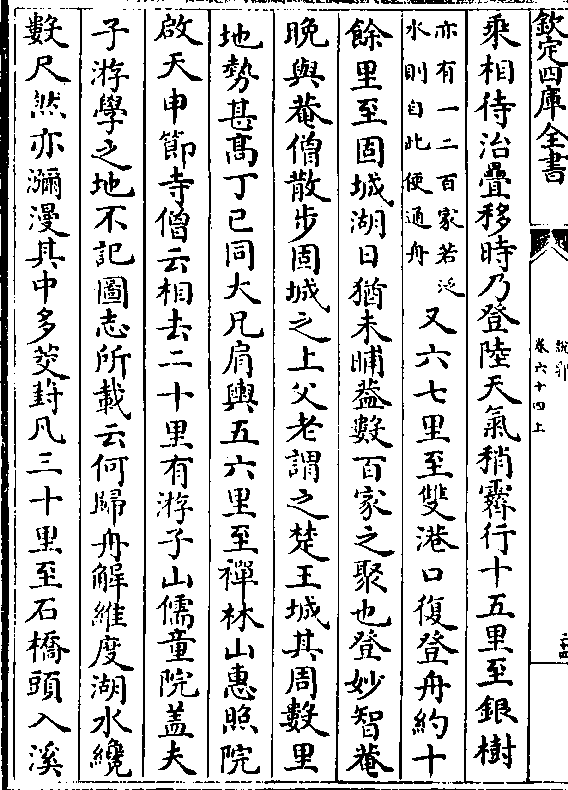 欽定四庫全書
說郛
卷六十四上
乘相待治疊移時乃登陸天氣稍霽行十五里至銀樹
亦有一二百家若泛
水則自此便通舟
又六七里至雙港口復登舟約十
餘里至固城湖日猶未晡葢數百家之聚也登妙智菴
晚與菴僧散步固城之上父老謂之楚王城其周數里
地勢甚髙丁已同大兄肩輿五六里至禪林山惠照院
啟天申節寺僧云相去二十里有游子山儒童院葢夫
子游學之地不記圖志所載云何歸舟解維度湖水纔
數尺然亦瀰漫其中多茭葑凡三十里至石橋頭入溪